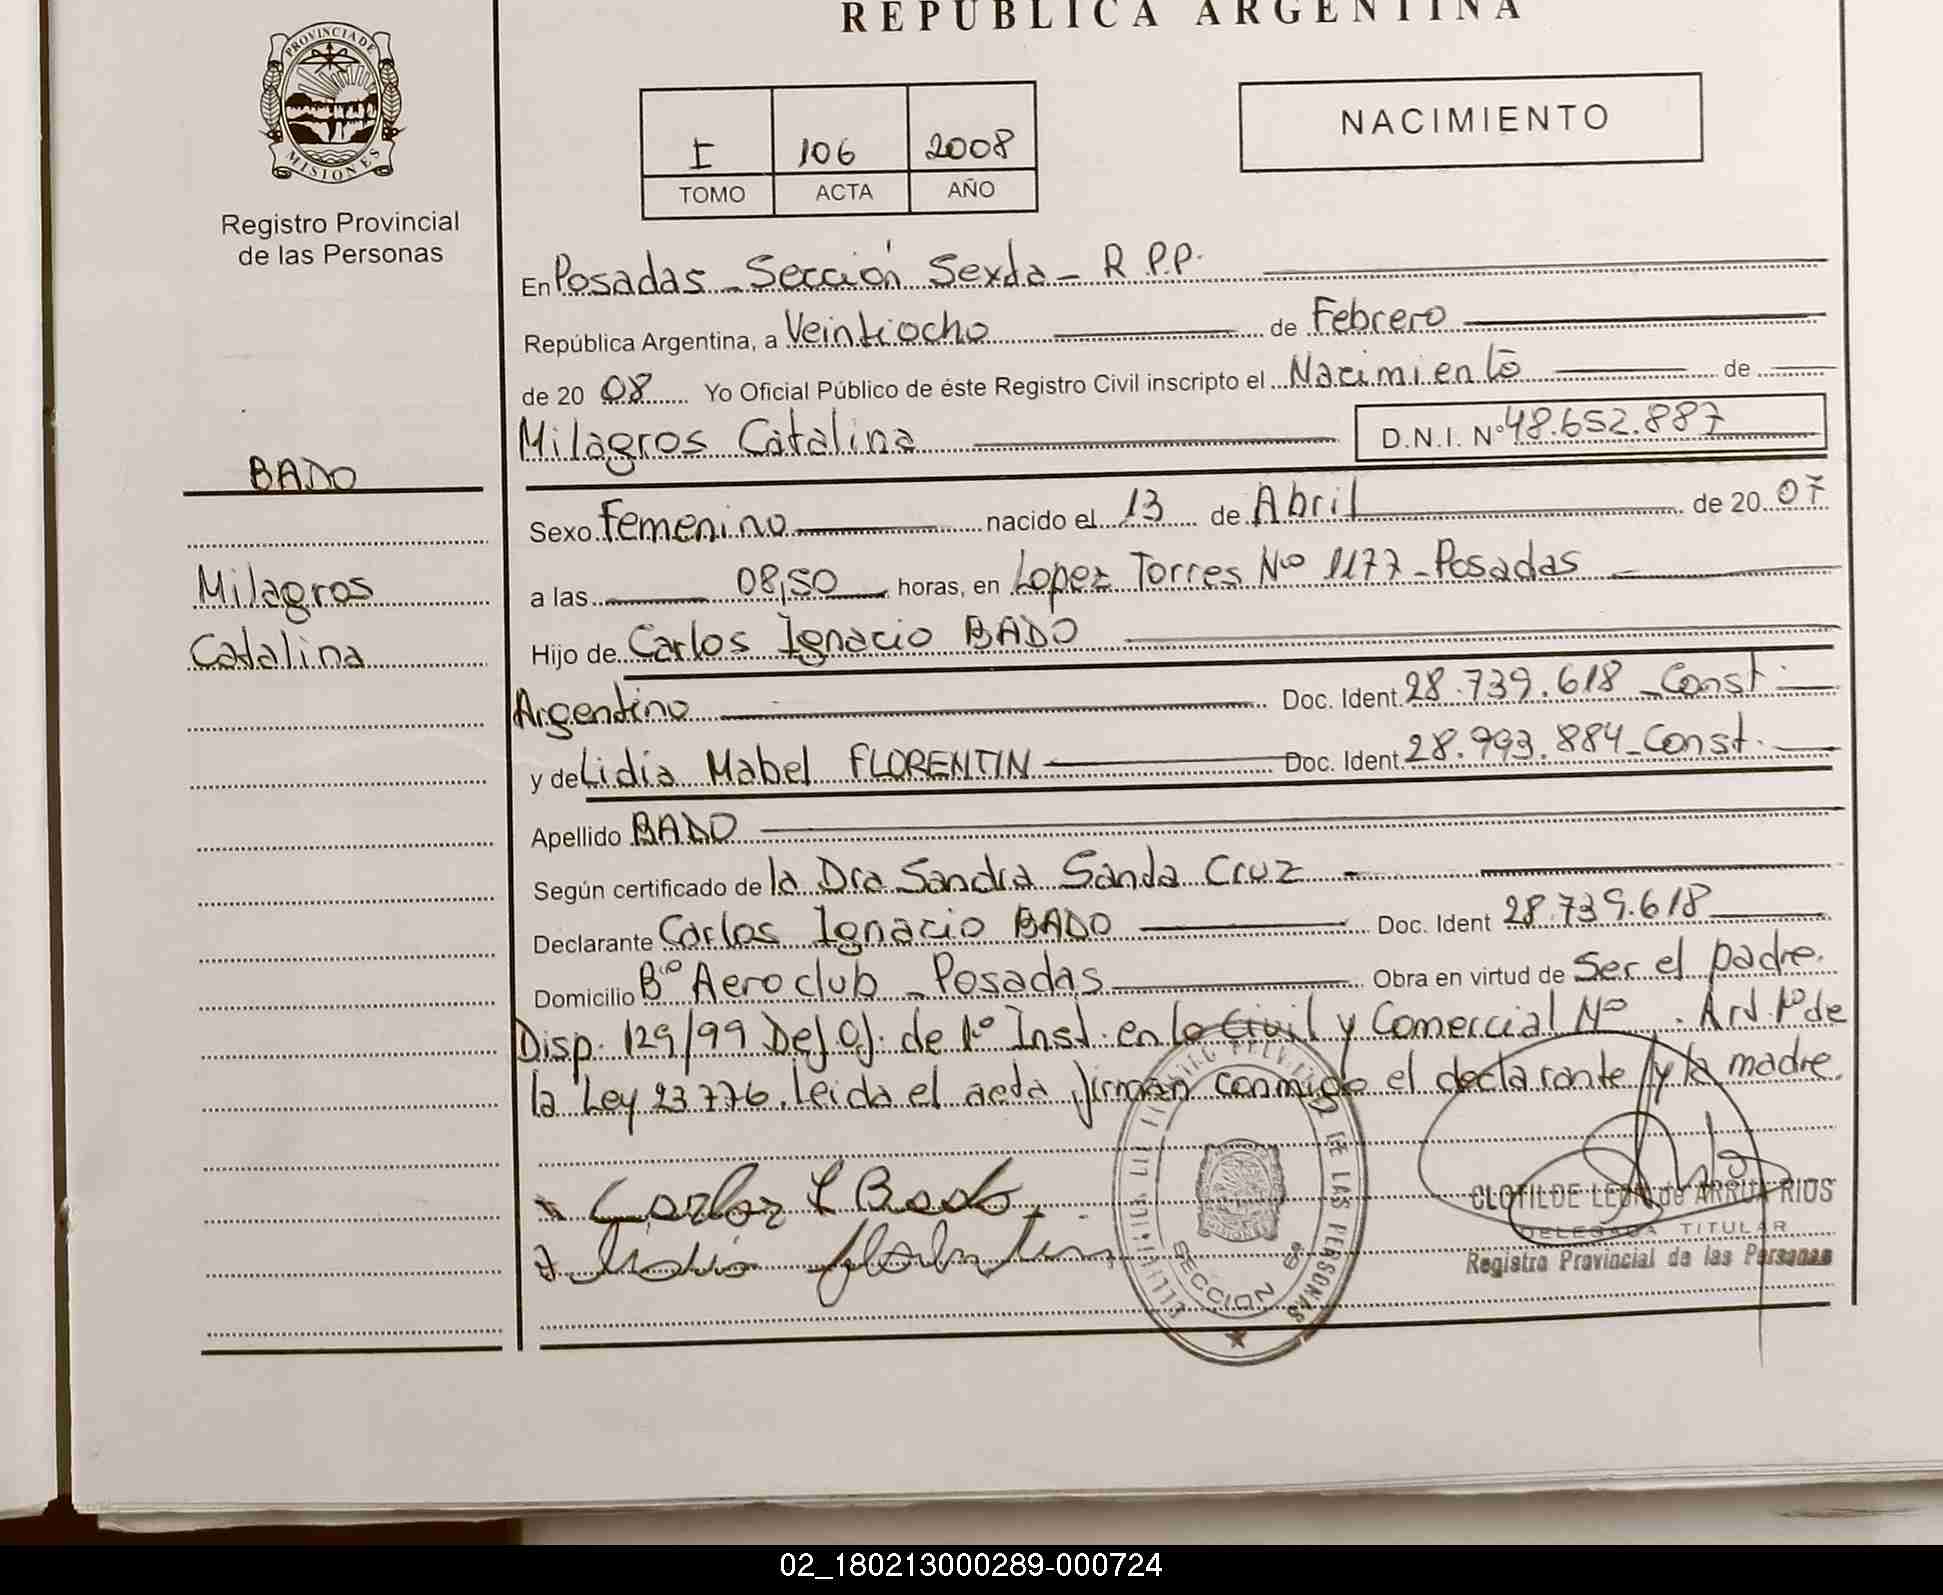 REPÚBLICA ARGENTINA
PROVINCIA DE
MISIONES
Registro Provincial
de las Personas
I 106 2008
TOMO ACTA AÑO
NACIMIENTO
En Posadas - Sección Sexta - R.P.P.
República Argentina, a Veintiocho de Febrero
de 20 08 Yo Oficial Público de éste Registro Civil inscripto el Nacimiento de
Milagros Catalina D.N.I. Nº 48.652.887
BADO
Milagros
Catalina
Sexo Femenino nacido el 13 de Abril de 20 07
a las 08,50 horas, en Lopez Torres Nº 1177 - Posadas
Hijo de Carlos Ignacio BADO
Argentino Doc. Ident. 28.739.618 - Const.
y de Lidia Mabel FLORENTIN Doc. Ident. 28.993.884 - Const.
Apellido BADO
Según certificado de la Dra Sandra Santa Cruz -
Declarante Carlos Ignacio BADO Doc. Ident 28.739.618
Domicilio Bº Aeroclub - Posadas Obra en virtud de Ser el padre.
Disp. 129/99 Def. Of. de 1º Inst. en lo Civil y Comercial Nº . Art. 1º de
la Ley 23.776. Leida el acta firman conmigo el declarante y la madre.
Carlos I Bado
Lidia Florentin
DE LAS PERSONAS
SECCION 6ª
CLOTILDE LEON de ARRUA RIOS
DELEGADA TITULAR
Registro Provincial de las Personas
02_180213000289-000724